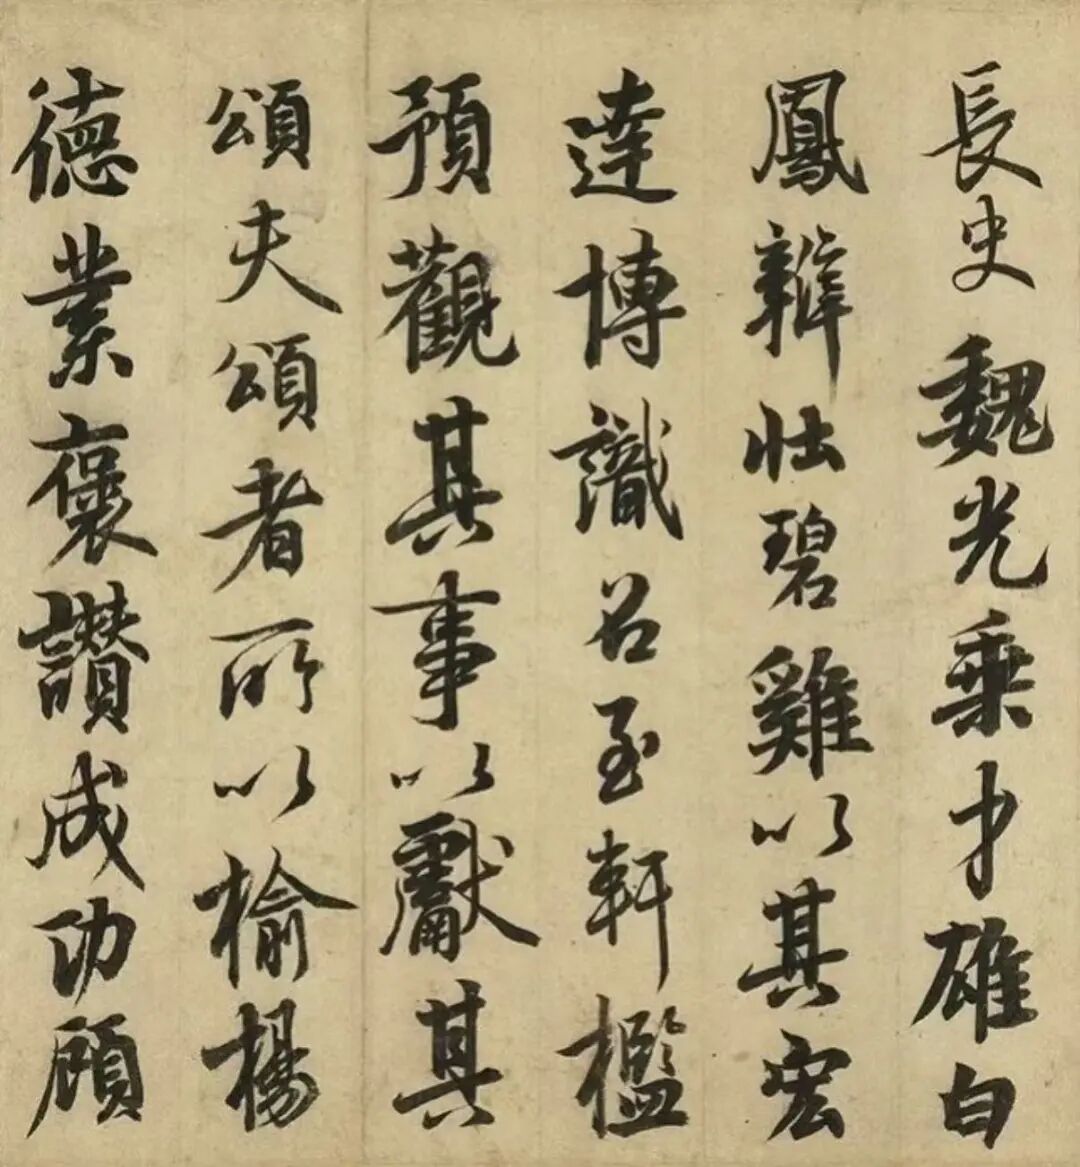 長史魏光乗才雄白
鳳辯壯碧雞以其宏
達博識召至軒檻
預觀其事以獻其
頌夫頌者所以榆楊
德業褒讚成功顧